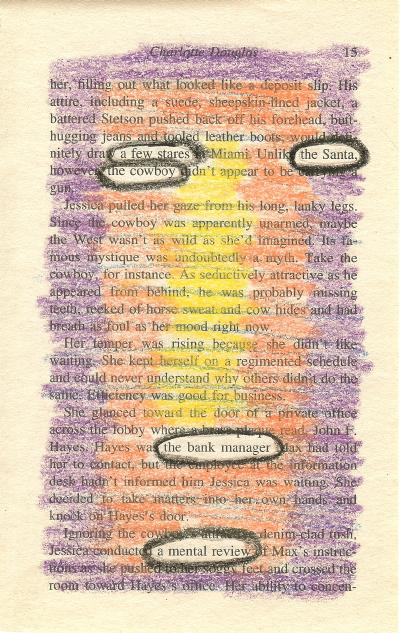 Charlotte Douglas 15
her, filling out what looked like a deposit slip. His
attire, including a suede, sheepskin-lined jacket, a
battered Stetson pushed back off his forehead, butt-
hugging jeans and tooled leather boots, would
nitely a few stares Miami. the Santa,
however, the cowboy didn't appear to be
gun.
Jessica pulled her gaze from his long, lanky legs.
Since the cowboy was apparently unarmed, maybe
the West wasn't as wild as she'd imagined. Its fa-
mous mystique was undoubtedly a myth. Take the
cowboy, for instance. As seductively attractive as he
appeared from behind, he was probably missing
teeth, reeked of horse sweat and cow hides and had
breath as foul as her mood right now.
Her temper was rising because she didn't like
waiting. She kept herself on a regimented schedule
and could never understand why others didn't do the
same. Efficiency was good for business.
She glanced toward the door of a private office
across the lobby where a brass plaque read, John F.
Hayes. Hayes was the bank manager Max had told
her to contact, but the employee at the information
desk hadn't informed him Jessica was waiting. She
decided to take matters into her own hands and
knock on Hayes's door.
Ignoring the denim-clad tush,
Jessica a mental review of Max's instruc-
tions as she pushed to her soggy feet and crossed the
room toward Hayes's office. Her ability to concen-